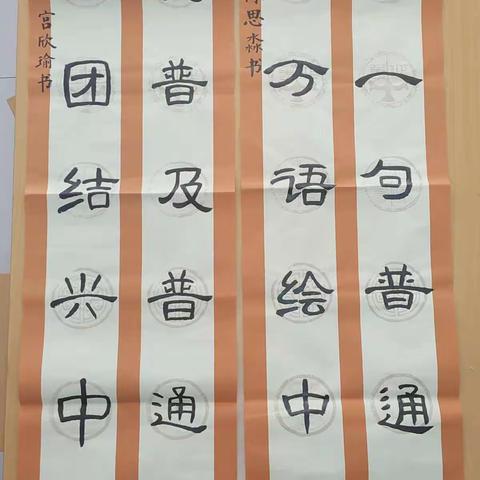 一句普通
万语绘中
思淼书
普及普通
团结兴中
宫欣瑜书